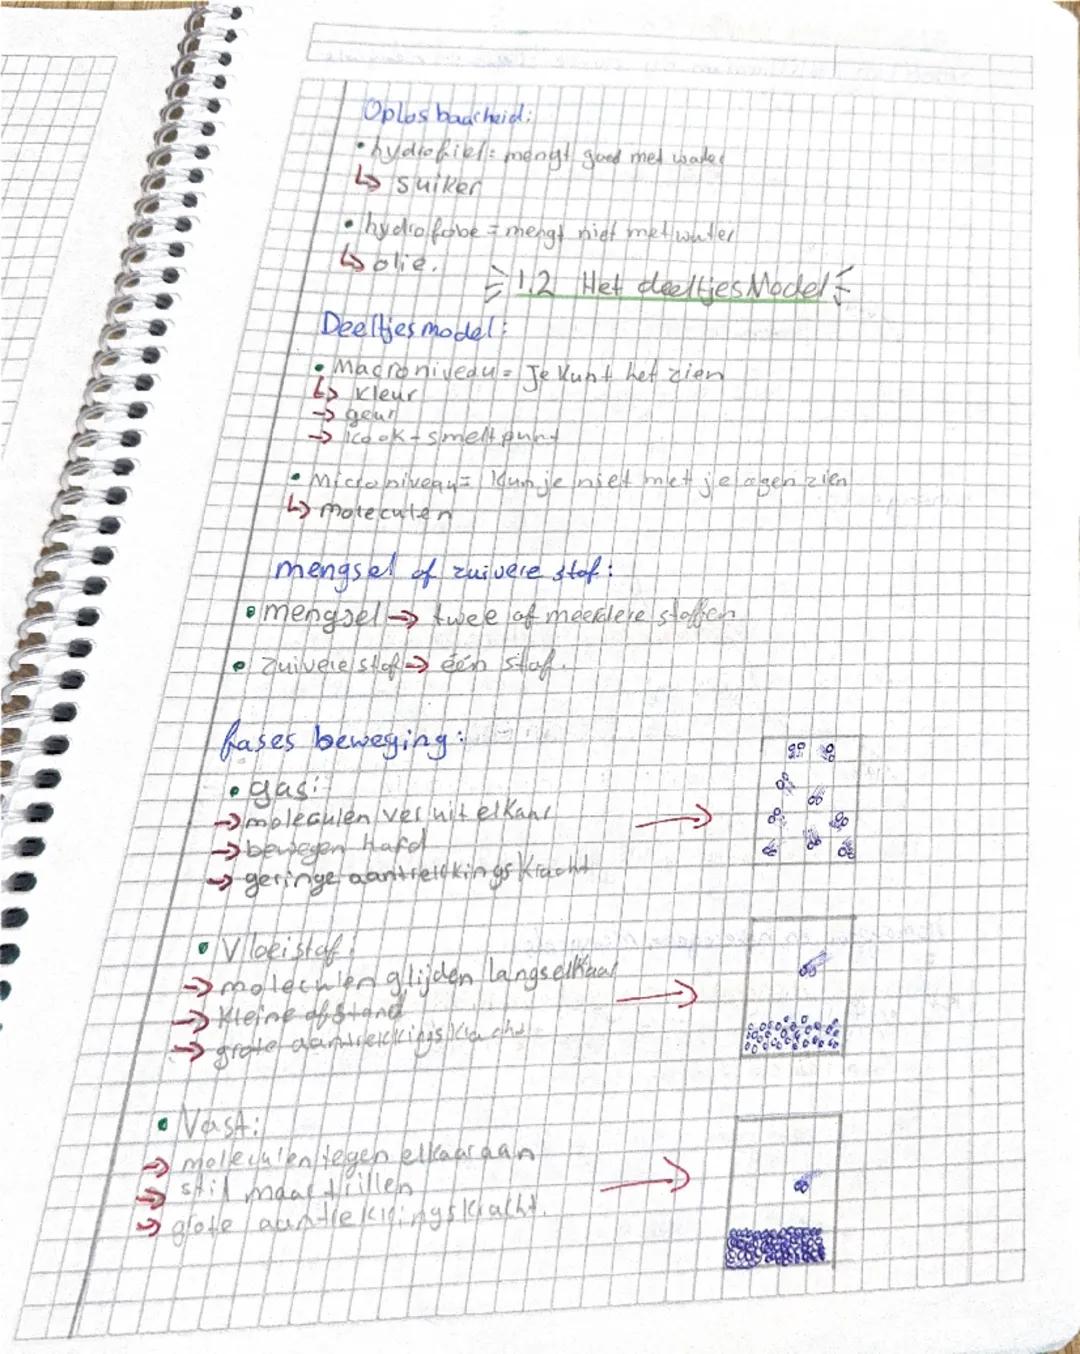 Oplosbaarheid:
• hydrofiel = mengt goed met water
↳ suiker
• hydrofobe = mengt niet met water
↳ olie.
1.2 Het deeltjesModel
Deeltjesmodel:
• Macroniveau = Je kunt het zien
↳ kleur
→ geur
→ kook + smeltpunt
• Microniveau = kun je niet met je ogen zien
↳ moleculen
mengsel of zuivere stof:
• mengsel → twee of meerdere stoffen
• zuivere stof → één stof.
fases beweging:
• gas:
→ moleculen ver uit elkaar
→ bewegen hard
→ geringe aantrekkingskracht
• Vloeistof:
→ moleculen glijden langs elkaar
→ kleine afstand
→ grote aantrekkingskracht
• Vast:
→ moleculen tegen elkaar aan
→ stil maar trillen
→ grote aantrekkingskracht.